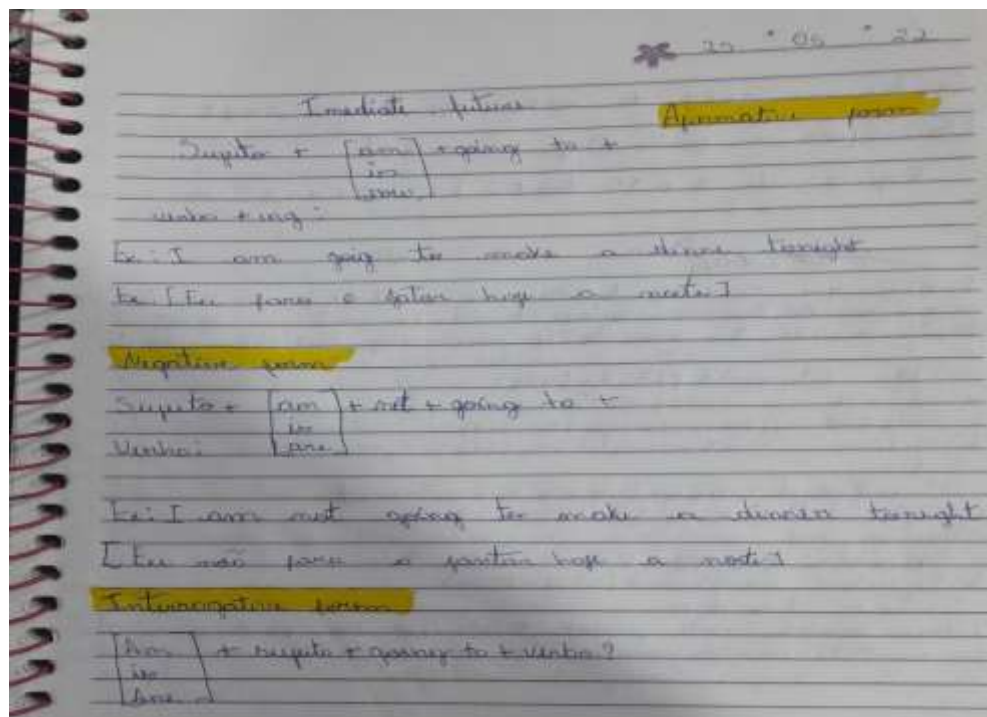 25 . 05 . 22
Imediate future Afirmative form
Sujeito + [am] + going to +
is
are
verbo + ing :
Ex: I am goig to make a dinner tonight
Ex: [Eu farei o jantar hoje a noite]
Negative form
Sujeito + [am] + not + going to +
is
Verbo: are
Ex: I am not going to make a dinner tonight
[Eu não farei o jantar hoje a noite]
Interrogative form
[Am] + sujeito + going to + verbo?
is
Are